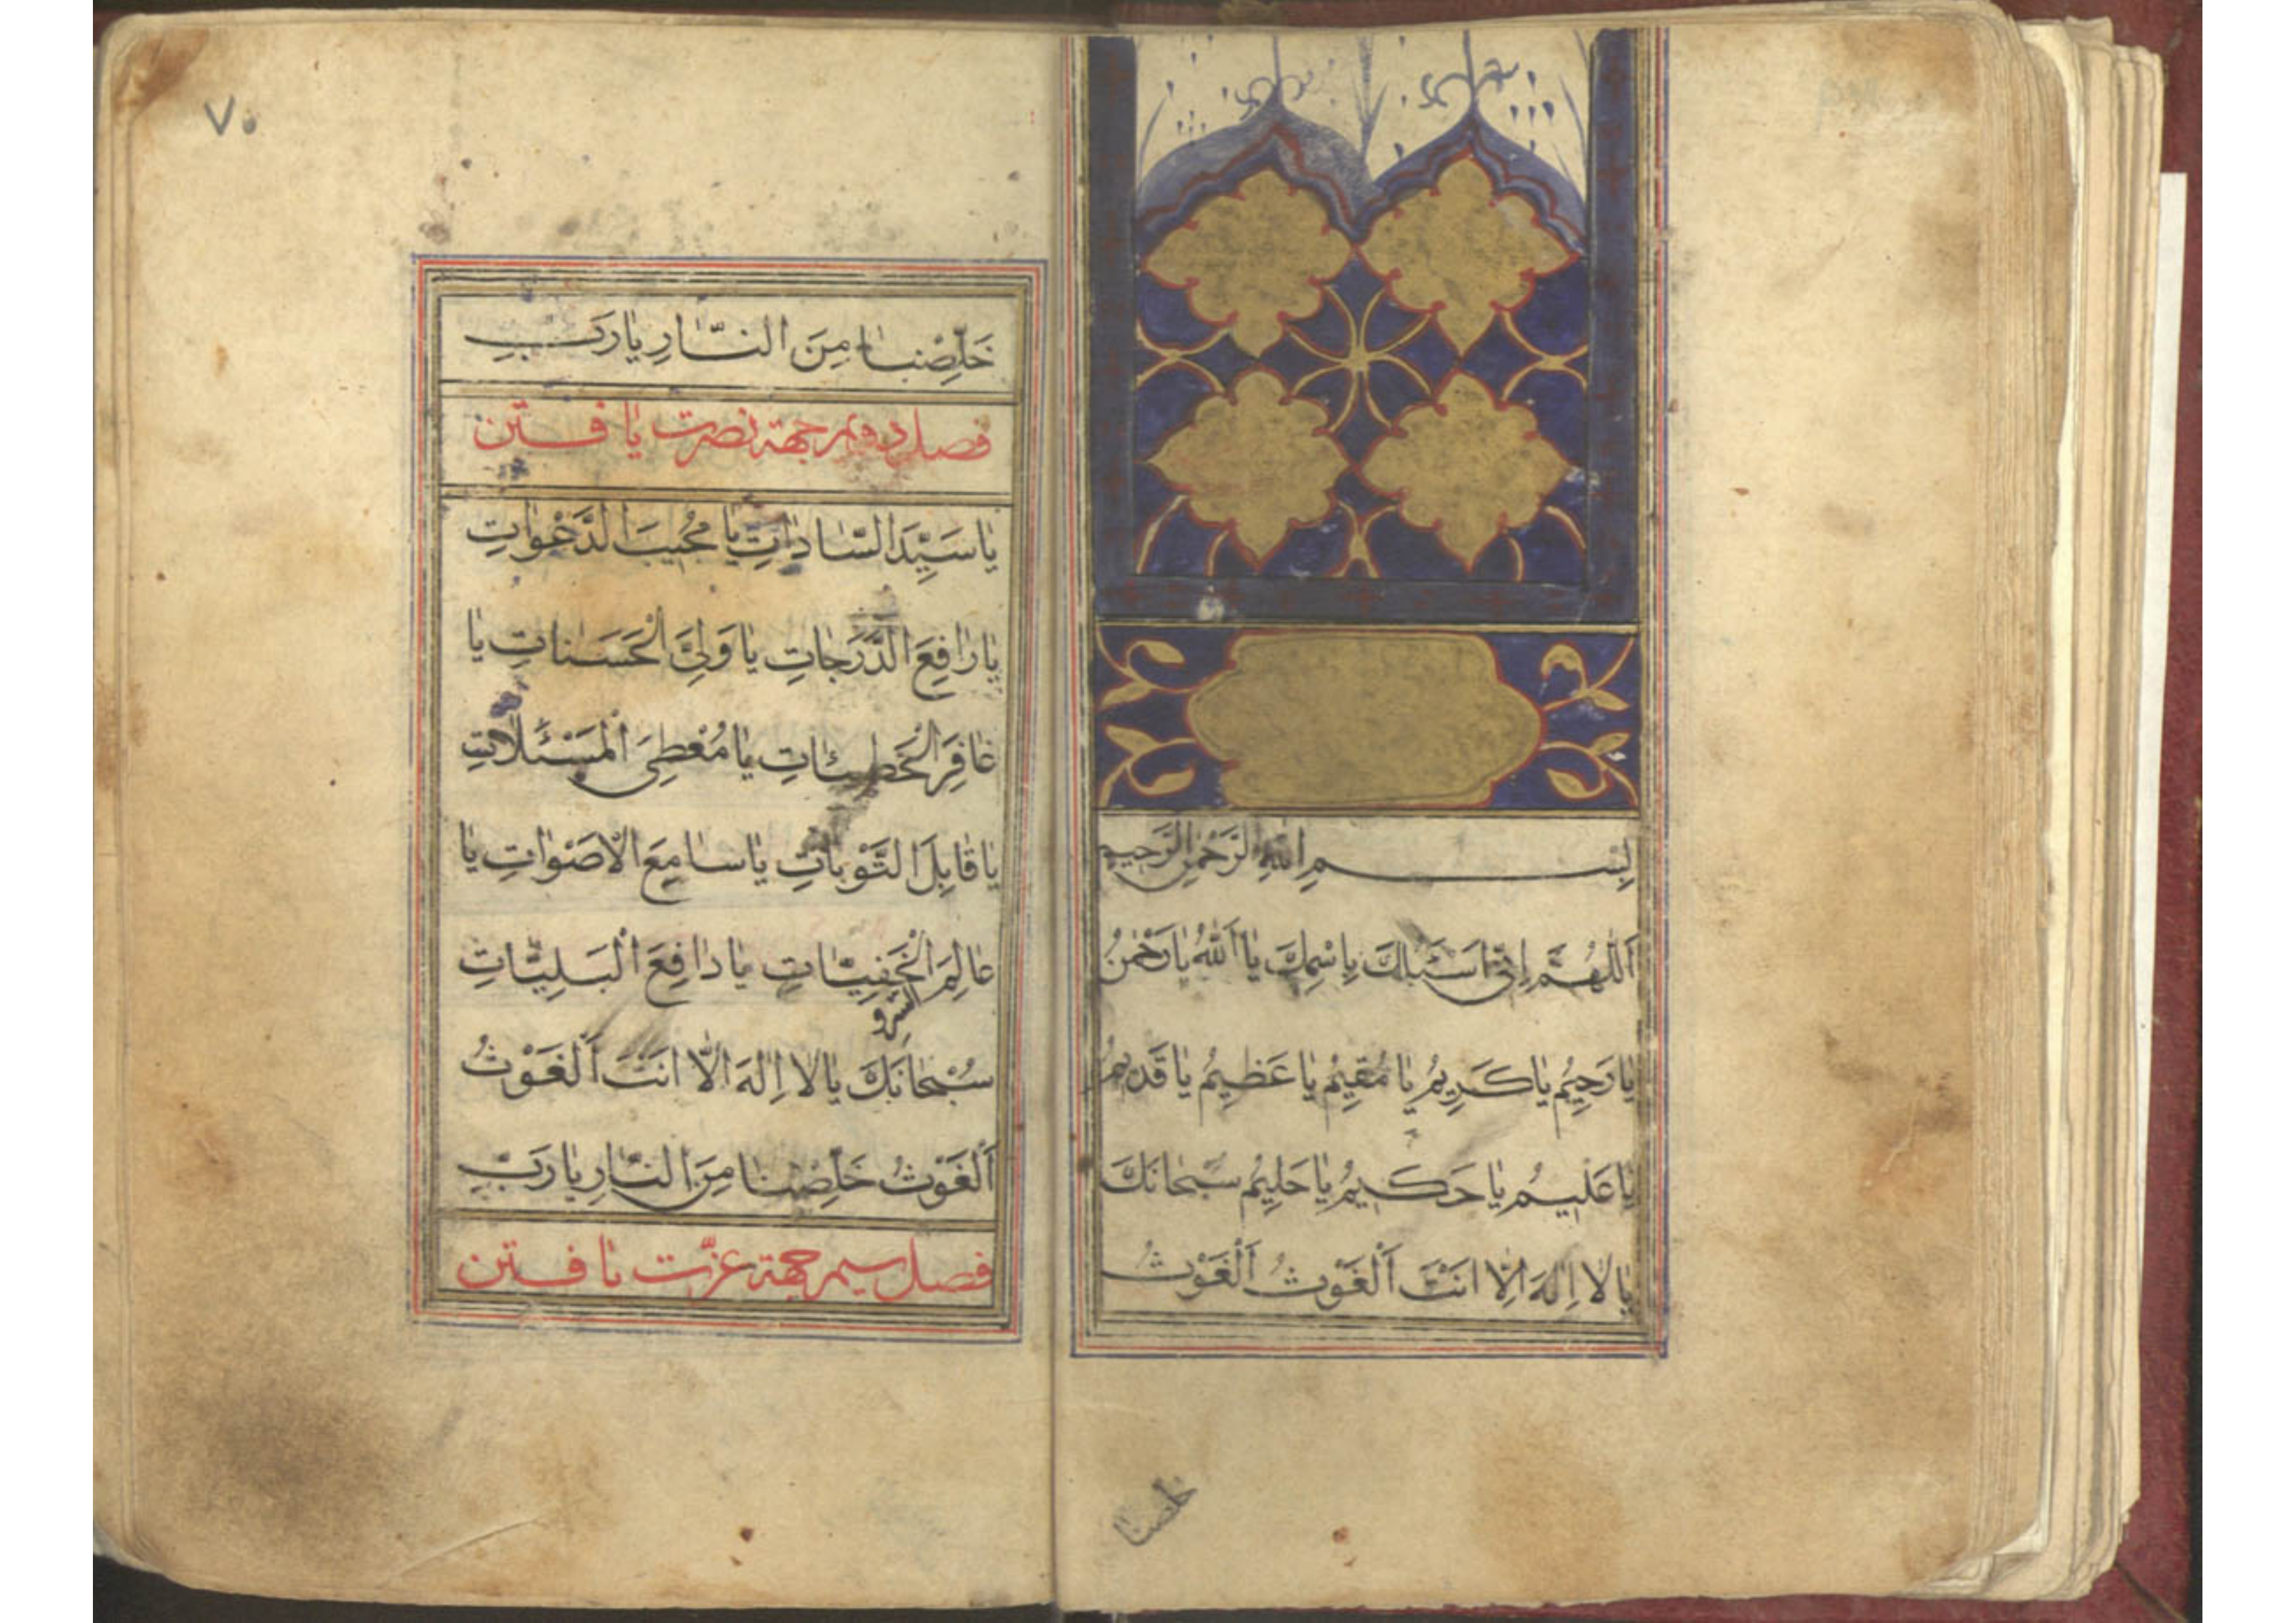 بِسْمِ اللهِ الرَّحْمٰنِ الرَّحِيمِ
اَللّٰهُمَّ اِنّى اَسْئَلُكَ بِاسْمِكَ يا اَللهُ يا رَحْمٰنُ
يا رَحِيمُ يا كَرِيمُ يا مُقِيمُ يا عَظِيمُ يا قَدِيمُ
يا عَلِيمُ يا حَكِيمُ يا حَلِيمُ سُبْحانَكَ
يا لا اِلٰهَ اِلّا اَنْتَ اَلْغَوْثُ اَلْغَوْثُ
خلصنا
٧٠
خَلِّصْنا مِنَ النّارِ يا رَبِّ
فصل دويم جهة نصرت يافتن
يا سَيِّدَ السّاداتِ يا مُجِيبَ الدَّعَواتِ
يا رافِعَ الدَّرَجاتِ يا وَلِىَّ الْحَسَناتِ يا
غافِرَ الْخَطِيئاتِ يا مُعْطِىَ الْمَسْئَلاتِ
يا قابِلَ التَّوْباتِ يا سامِعَ الْاَصْواتِ يا
عالِمَ الْخَفِيّاتِ يا دافِعَ الْبَلِيّاتِ
سُبْحانَكَ يا لا اِلٰهَ اِلّا اَنْتَ اَلْغَوْثُ
اَلْغَوْثُ خَلِّصْنا مِنَ النّارِ يا رَبِّ
فصل سيم جهة عزّت يافتن